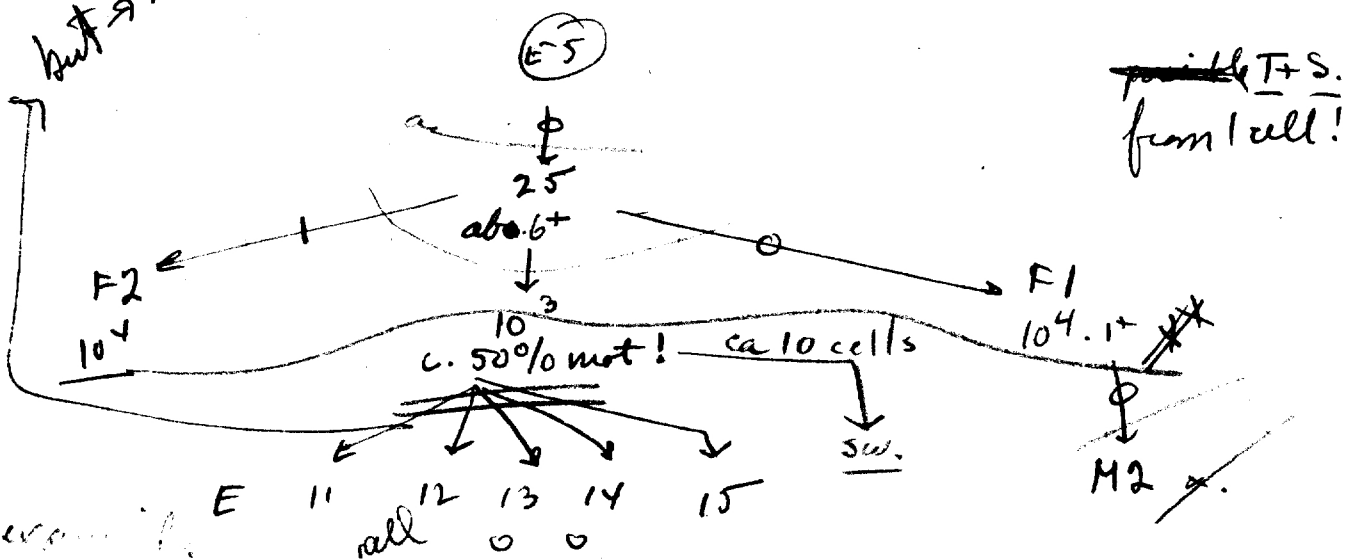 but
E-5
T+S.
from 1 cell!
a
φ
25
abo. 6+
1
0
F2
F1
10³
10⁴
10⁴. 1+
c. 50% mot! ca 10 cells
0
sw.
M2
E 11 12 13 14 15
all 0 0